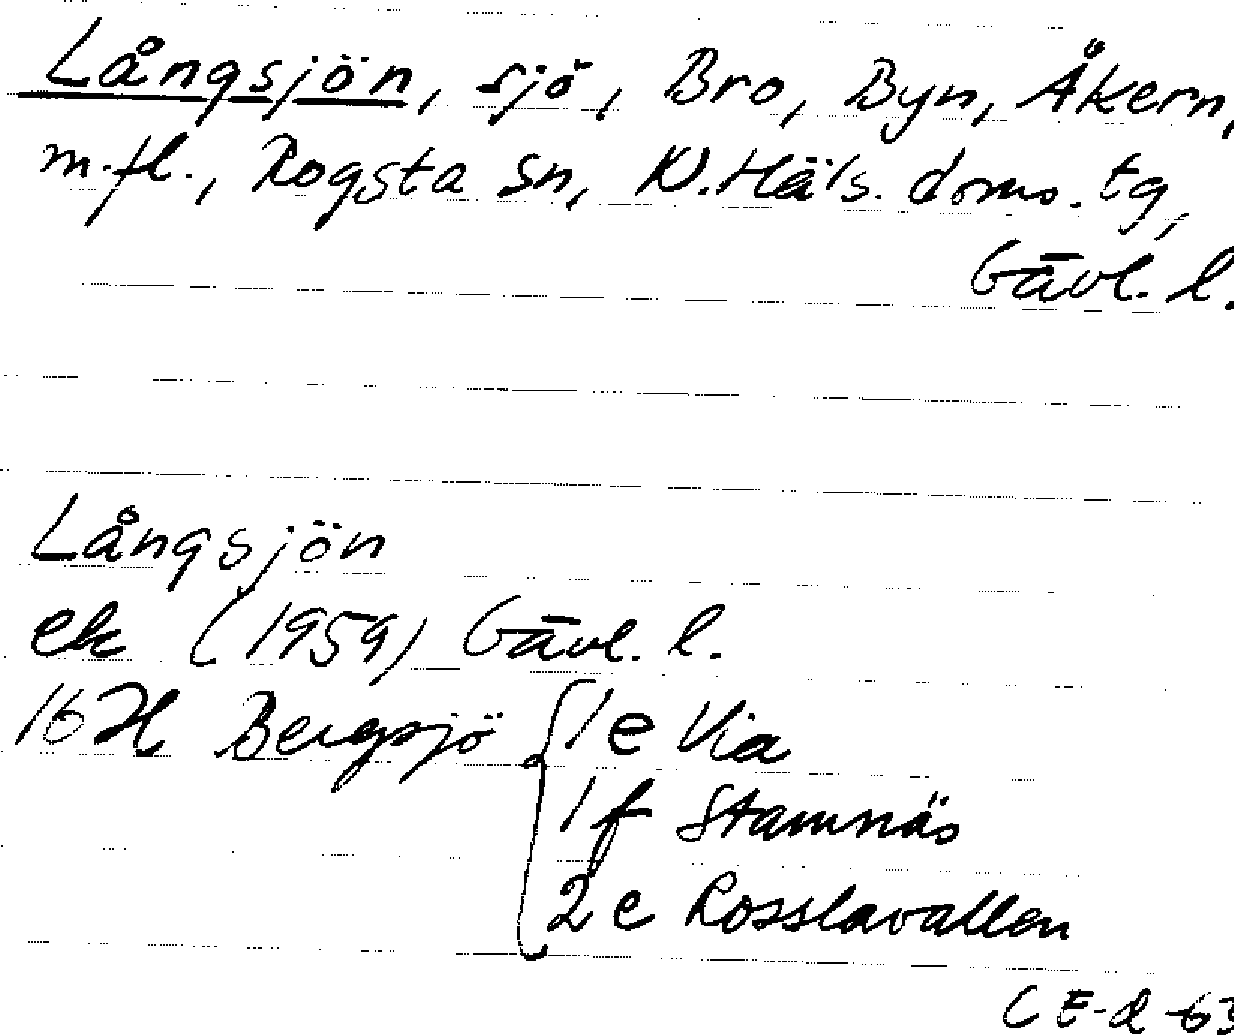 Långsjön, sjö, Bro, Byn, Åkern,
m.fl., Rogsta sn, N.Häls. doms. tg,
Gävl. l.
Långsjön
ek (1959) Gävl. l.
16H Bergsjö 1e Via
1f Stamnäs
2e Rosslavallen
CE-d -63